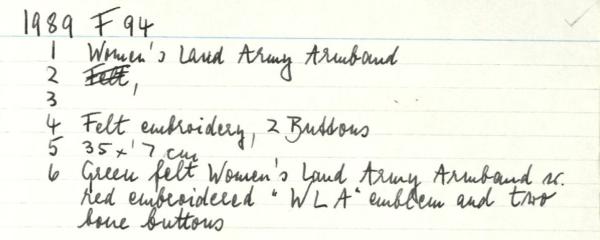 1989 F 94
1 Women's Land Army Armband
2 Felt,
3
4 Felt embroidery, 2 Buttons
5 35 x 7 cm
6 Green felt Women's Land Army Armband w.
red embroidered "WLA" emblem and two
bone buttons